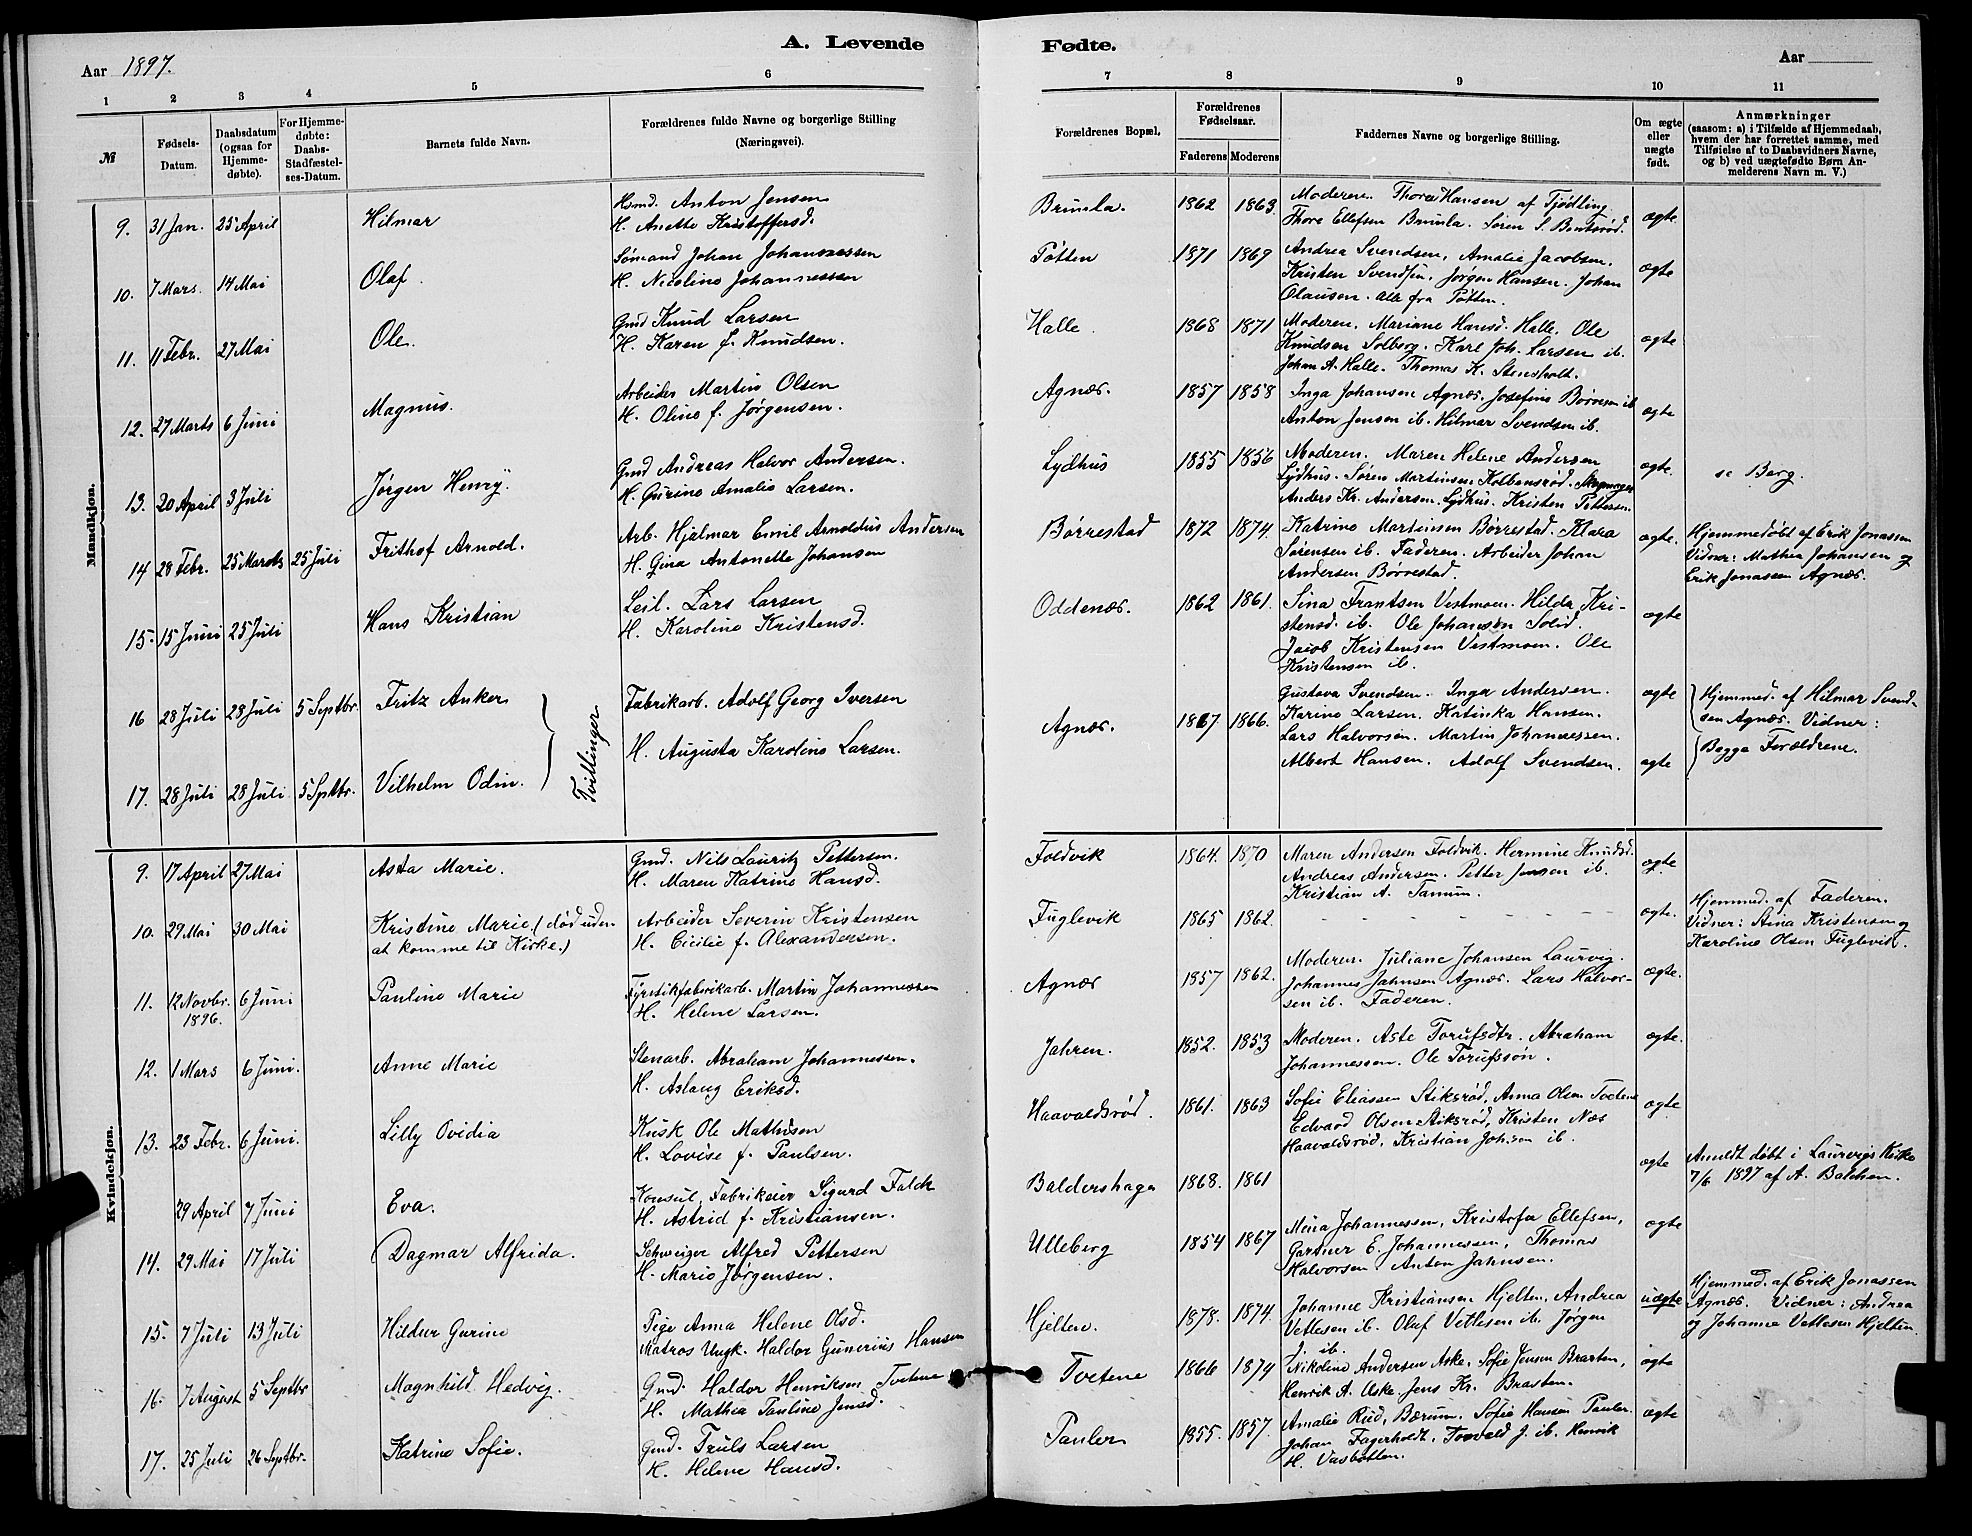 A. Levende Fødte.
Aar 1897.
Aar
1 2 3 4 5 6 7 8 9 10 11
№
Fødsels-Datum.
Daabsdatum (ogsaa for Hjemme-døbte).
For Hjemme-døbte: Daabs-Stadfæstel-ses-Datum.
Barnets fulde Navn.
Forældrenes fulde Navne og borgerlige Stilling (Næringsvei).
Forældrenes Bopæl.
Forældrenes Fødselsaar.
Faderens Moderens
Faddernes Navne og borgerlige Stilling.
Om ægte eller uægte født.
Anmærkninger
(saasom: a) i Tilfælde af Hjemmedaab, hvem der har forrettet samme, med Tilføielse af to Daabsvidners Navne, og b) ved uægtefødte Børn An-melderens Navn m. V.)
Mandkjøn.
9. 31 Jan. 25 April Hilmar
Hsmd. Anton Jensen
H. Anette Kristoffersd.
Brunla. 1862 1863
Moderen. Thora Hansen af Tjødling.
Thora Ellefsen Brunla. Søren S. Bentsrød.
ægte.
10. 7 Mars. 14 Mai Olaf.
Sømand Johan Johannessen
H. Nicoline Johannessen
Tøtten 1871 1869
Andrea Svendsen, Amalie Jacobsen.
Kristen Svendsen, Jørgen Hansen. Johan
Olausen. Alle fra Tøtten.
ægte
11. 11 Febr. 27 Mai Ole.
Gmd Knud Larsen
H. Karen f. Knudsen.
Halle. 1868 1871
Moderen. Mariane Hansd. Halle. Ole
Knudsen Solberg. Karl Joh. Larsen ib.
Johan A. Halle. Thomas K. Stensholt.
ægte.
12. 27 Marts 6 Juni Magnus.
Arbeider Martin Olsen
H. Oline f. Jørgensen.
Agnæs. 1857 1858
Inga Johansen Agnæs. Josefine Børresen ib
Anton Jensen ib. Hilmar Svendsen ib.
ægte
13. 20 April 3 Juli Jørgen Henry.
Gmd Andreas Halvor Andersen.
H. Gurine Amalie Larsen.
Lydhus 1855 1856
Moderen. Maren Helene Andersen
Lydhus. Søren Martinsen Kolbensrød. Skomager
Anders Kr. Andersen. Lydhus. Kristen Pettersen.
ægte.
se Berg.
14 28 Febr. 25 Marts 25 Juli Frithof Arnold.
Arb. Hjalmar Emil Arnoldus Andersen
H. Gina Antonette Johansen
Børrestad 1872 1874.
Katrine Martinsen Børrestad. Klara
Sørensen ib. Faderen. Arbeider Johan
Andersen Børrestad.
ægte.
Hjemmedøbt af Erik Jonassen
Vidner: Mathea Johansen og
Erik Jonassen Agnæs.
15. 15 Juni 25 Juli Hans Kristian
Leil. Lars Larsen
H. Karoline Kristensd.
Oddenæs. 1862 1861.
Sina Frantsen Vestmoen. Hilda Kri-
stensd. ib. Ole Johansen Solid.
Jacob Kristensen Vestmoen. Ole
Kristensen ib.
ægte
16 28 Juli 28 Juli 5 Septbr. Fritz Anker
17. 28 Juli 28 Juli 5 Sptbr. Vilhelm Odin.
Tvillinger
Fabrikarb. Adolf Georg Iversen
H. Augusta Karoline Larsen.
Agnæs. 1867 1866.
Gustava Svendsen. Inga Andersen.
Karine Larsen. Katinka Hansen.
Lars Halvorsen. Martin Johannessen.
Albert Hansen. Adolf Svendsen.
ægte
ægte
Hjemmed. af Hilmar Svend-
sen Agnæs. Vidner:
Begge Forældrene.
Kvindekjøn.
9. 17 April 27 Mai Asta Marie.
Gmd. Nils Lauritz Pettersen.
H. Maren Katrine Hansd.
Foldvik 1864. 1870
Maren Andersen Foldvik. Hermine Knudsd.
Andreas Andersen. Petter Jensen ib.
Kristian A. Tanum.
ægte.
10. 29 Mai 30 Mai Kristine Marie. (død uden
at komme til Kirke.)
Arbeider Severin Kristensen
H. Cicilie f. Alexandersen.
Fuglevik 1865 1862
ægte.
Hjemmed. af Faderen.
Vidner: Stina Kristensen og
Karoline Olsen Fuglevik.
11. 12 Novbr. 1896. 6 Juni Pauline Marie
Fyrstikfabrikarb. Martin Johannessen
H. Helene Larsen.
Agnæs 1857 1862.
Moderen. Juliane Johansen Laurvig.
Johannes Jahnsen Agnæs. Lars Halvor-
sen ib. Faderen.
ægte.
12. 1 Mars 6 Juni. Anne Marie
Stenarb. Abraham Johannessen.
H. Aslaug Eriksd.
Jahren. 1852. 1853
Moderen. Aste Torufsdtr. Abraham
Johannessen. Ole Torufssøn.
ægte.
13. 23 Febr. 6 Juni. Lilly Ovidia
Kusk Ole Mathisen
H. Lovise f. Paulsen.
Haavaldsrød. 1861. 1863
Sofie Eliassen Stiksrød, Anna Olsen Tvetene
Edvard Olsen Stiksrød, Kristen Næs
Haavaldsrød, Kristian Johsen ib.
ægte
29 April 7 Juni Eva.
Konsul, Fabrikeier Sigurd Falck
H. Astrid f. Kristiansen.
Baldershage 1868. 1861
ægte
Anmeldt døbt i Laurvigs Kirke
7/6 1897 af A. Balchen.
14. 29 Mai 17 Juli Dagmar Alfrida.
Schweizer Alfred Pettersen
H. Marie Jørgensen.
Ulleberg 1854 1867
Mina Johannessen, Kristofa Ellefsen,
Gartner E. Johannessen, Thomas
Halvorsen Anton Jahnsen.
ægte
15. 7 Juli 13 Juli Hildur Gurine
Pige Anna Helene Olsd.
Matros Ungk. Haldor Gunerius Hansen
Hjelten. 1878. 1874.
Johanne Kristiansen Hjelten, Andrea
Vetlesen ib. Olaf Vetlesen ib. Jørgen
J. ib.
uægte
Hjemmed. af Erik Jonassen
Agnæs. Vidner: Andrea
og Johanne Vetlesen Hjelten.
16. 7 August 5 Septbr Magnhild Hedvig.
Gmd. Haldor Henriksen Tvetene
H. Mathea Pauline Jensd.
Tvetene 1866 1874
Nikoline Andersen Aske, Sofie Jensen Braaten,
Henrik A. Aske. Jens Kr. Braaten.
ægte
17. 25 Juli 26 Septbr. Katrine Sofie.
Gmd. Truls Larsen
H. Helene Hansd.
Pauler 1855. 1857.
Amalie Rud, Bærum. Sofie Hansen Pauler.
Johan Fagerholdt. Torvald J. ib. Henrik
H. Vasbotten.
ægte